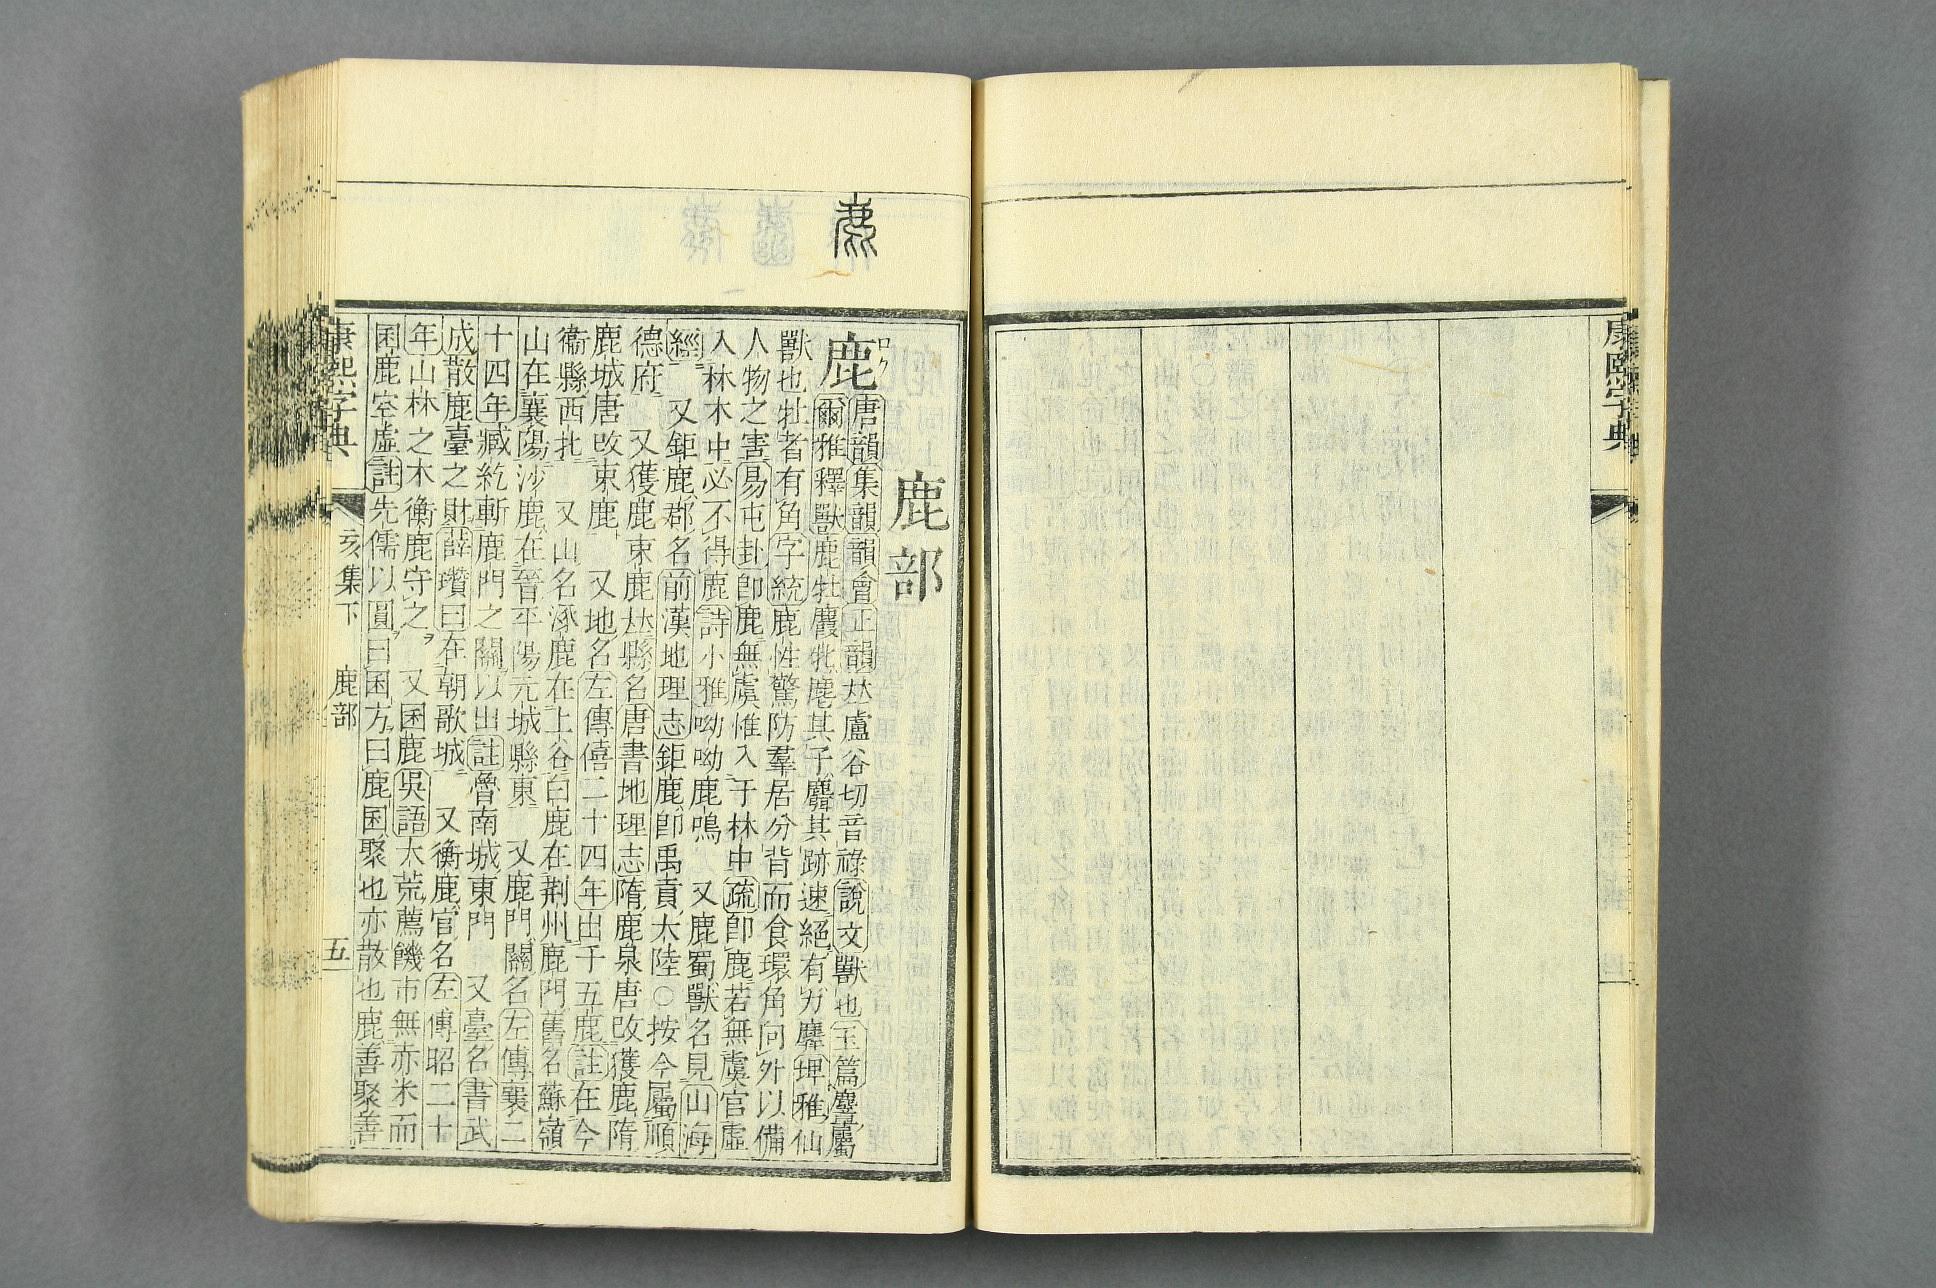 康熙字典
鹿
鹿部
鹿
ロク
唐韻集韻韻會正韻𠀤盧谷切音祿說文獸也玉篇麞屬
爾雅釋獸鹿牡麚牝麀其子麛其跡速絕有力麉埤雅仙
獸也牡者有角字統鹿性驚防羣居分背而食環角向外以備
人物之害易屯卦卽鹿無虞惟入于林中疏卽鹿若無虞官虛
入林木中必不得鹿詩小雅呦呦鹿鳴 又鹿蜀獸名見山海
經 又鉅鹿郡名前漢地理志鉅鹿卽禹貢大陸○按今屬順
德府 又獲鹿束鹿𠀤縣名唐書地理志隋鹿泉唐改獲鹿隋
鹿城唐改束鹿 又地名左傳僖二十四年出于五鹿註在今
衞縣西北 又山名涿鹿在上谷白鹿在荆州鹿門舊名蘇嶺
山在襄陽沙鹿在晉平陽元城縣東 又鹿門關名左傳襄二
十四年臧紇斬鹿門之關以出註魯南城東門 又臺名書武
成散鹿臺之財薛瓚曰在朝歌城 又衡鹿官名左傳昭二十
年山林之木衡鹿守之 又囷鹿吳語大荒薦饑市無赤米而
囷鹿空虛註先儒以圓曰囷方曰鹿囷聚也亦散也鹿善聚善
康熙字典 亥集下 鹿部 五